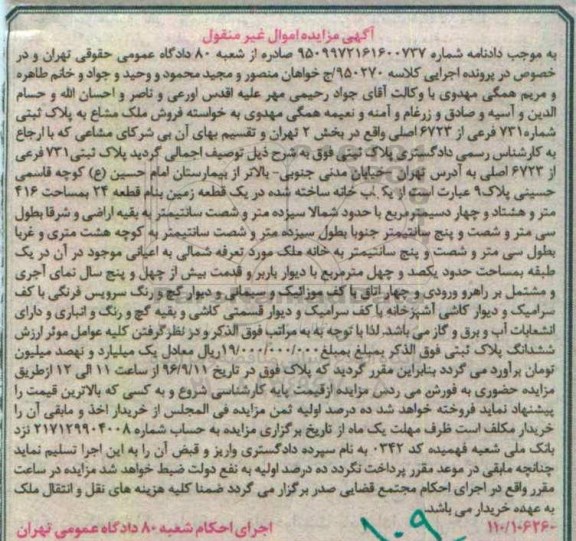 آگهی مزایده اموال غیر منقول
به موجب دادنامه شماره ۹۵۰۹۹۷۲۱۶۱۶۰۰۷۳۷ صادره از شعبه ۸۰ دادگاه عمومی حقوقی تهران و در
خصوص در پرونده اجرایی کلاسه ۹۵۰۲۷۰/ج خواهان منصور و مجید محمود و وحید و جواد و خانم طاهره
و مریم همگی مهدوی با وکالت آقای جواد رحیمی مهر علیه اقدس اورعی و ناصر و احسان الله و حسام
الدین و آسیه و صادق و زرغام و آمنه و نعیمه همگی مهدوی به خواسته فروش ملک مشاع به پلاک ثبتی
شماره ۷۳۱ فرعی از ۶۷۲۳ اصلی واقع در بخش ۲ تهران و تقسیم بهای آن بی شرکای مشاعی که با ارجاع
به کارشناس رسمی دادگستری پلاک ثبتی فوق به شرح ذیل توصیف اجمالی گردید پلاک ثبتی ۷۳۱ فرعی
از ۶۷۲۳ اصلی به آدرس تهران -خیابان مدنی جنوبی- بالاتر از بیمارستان امام حسین (ع) کوچه قاسمی
حسینی پلاک ۹ عبارت است از یک باب خانه ساخته شده در یک قطعه زمین بنام قطعه ۲۴ بمساحت ۴۱۶
متر و هشتاد و چهار دسیمترمربع با حدود شمالا سیزده متر و شصت سانتیمتر به بقیه اراضی و شرقا بطول
سی متر و شصت و پنج سانتیمتر جنوبا بطول سیزده متر و شصت سانتیمتر به کوچه هشت متری و غربا
بطول سی متر و شصت و پنج سانتیمتر به خانه ملک مورد تعرفه شمالی به اعیانی موجود در آن در یک
طبقه بمساحت حدود یکصد و چهل مترمربع با دیوار باربر و قدمت بیش از چهل و پنج سال نمای آجری
و مشتمل بر راهرو ورودی و چهار اتاق با کف موزائیک و سیمانی و دیوار گچ و رنگ سرویس فرنگی با کف
سرامیک و دیوار کاشی آشپزخانه با کف سرامیک و دیوار قسمتی کاشی و بقیه گچ و رنگ و انباری و دارای
انشعابات آب و برق و گاز می باشد. لذا با توجه به به مراتب فوق الذکر و در نظر گرفتن کلیه عوامل موثر ارزش
ششدانگ پلاک ثبتی فوق الذکر بمبلغ بمبلغ ۱۹/۰۰۰/۰۰۰/۰۰۰ ریال معادل یک میلیارد و نهصد میلیون
تومان برآورد می گردد بنابراین مقرر گردید که پلاک فوق در تاریخ ۹۶/۹/۱۱ از ساعت ۱۱ الی ۱۲ ازطریق
مزایده حضوری به فورش می رسد مزایده ازقیمت پایه کارشناسی شروع و به کسی که بالاترین قیمت را
پیشنهاد نماید فروخته خواهد شد ده درصد اولیه ثمن مزایده فی المجلس از خریدار اخذ و مابقی آن را
خریدار مکلف است ظرف مهلت یک ماه از تاریخ برگزاری مزایده به حساب شماره ۲۱۷۱۲۹۹۰۴۰۰۸ نزد
بانک ملی شعبه فهمیده کد ۰۳۴۲ به نام سپرده دادگستری واریز و قبض آن را به این اجرا تسلیم نماید
چنانچه مابقی در موعد مقرر پرداخت نگردد ده درصد اولیه به نفع دولت ضبط خواهد شد مزایده در ساعت
مقرر واقع در اجرای احکام مجتمع قضایی صدر برگزار می گردد ضمنا کلیه هزینه های نقل و انتقال ملک
به عهده خریدار می باشد.
۱۱۰/۱۰۶۲۶۰ اجرای احکام شعبه ۸۰ دادگاه عمومی تهران
۱۰۹